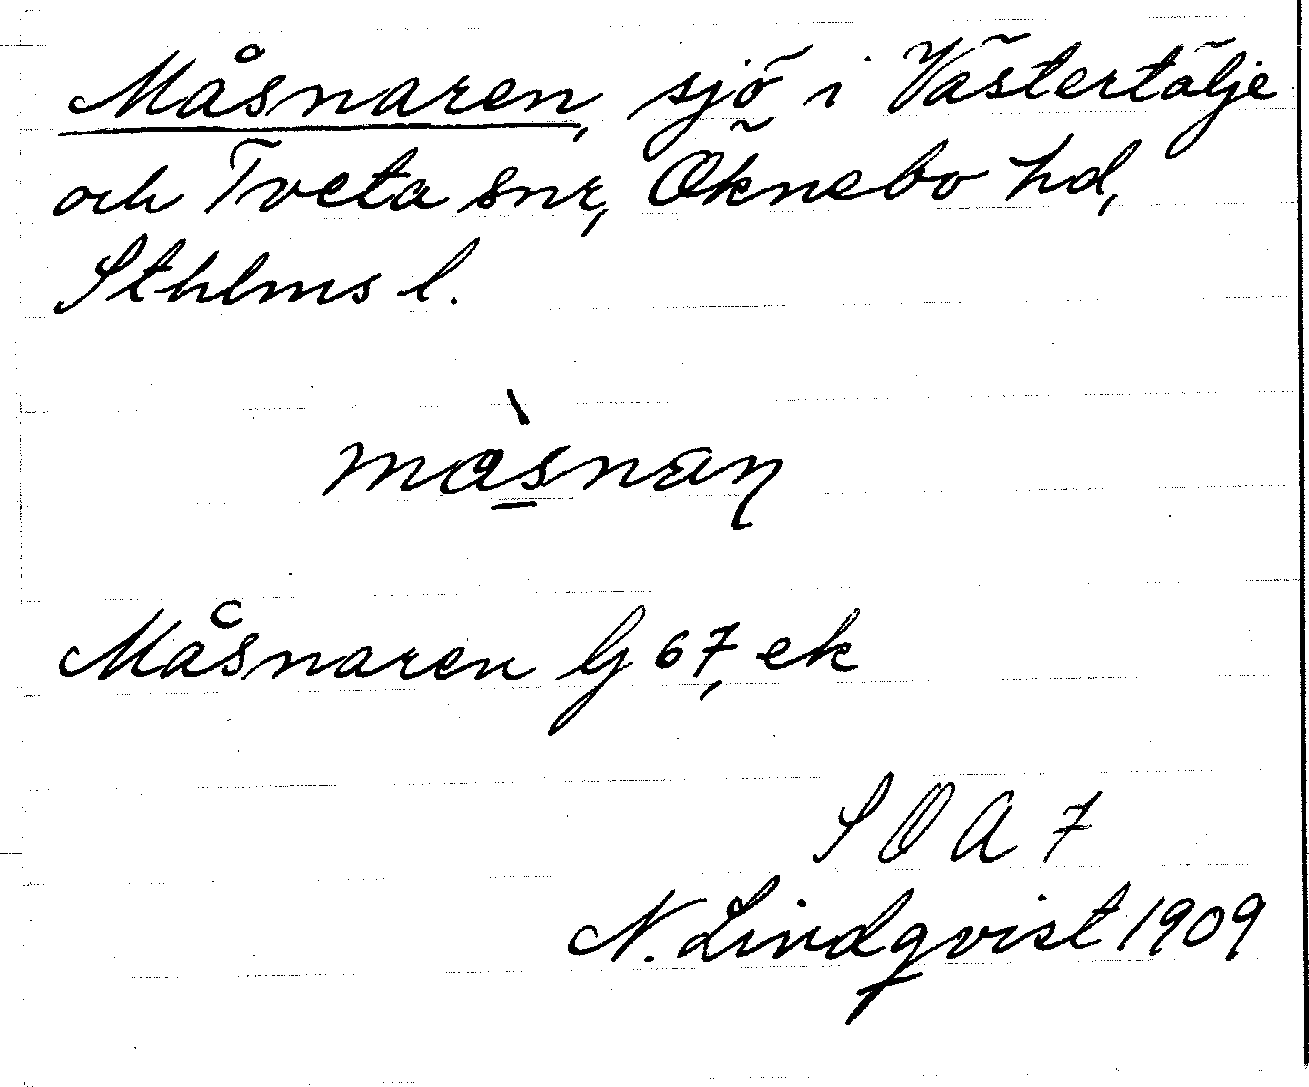 Måsnaren, sjö i Västertälje
och Tveta snr, Öknebo hd,
Sthlms l.
Måsnaren G 67, ek
SOA 7
N. Lindqvist 1909